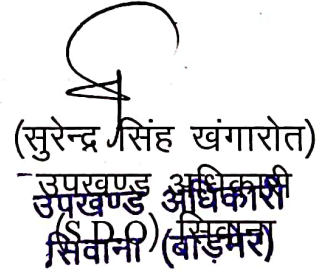 (सुरेन्द्र सिंह खंगारोत)
उपखण्ड अधिकारी
उपखण्ड अधिकारी
(S.D.O) सिवाना
सिवाना (बाड़मेर)